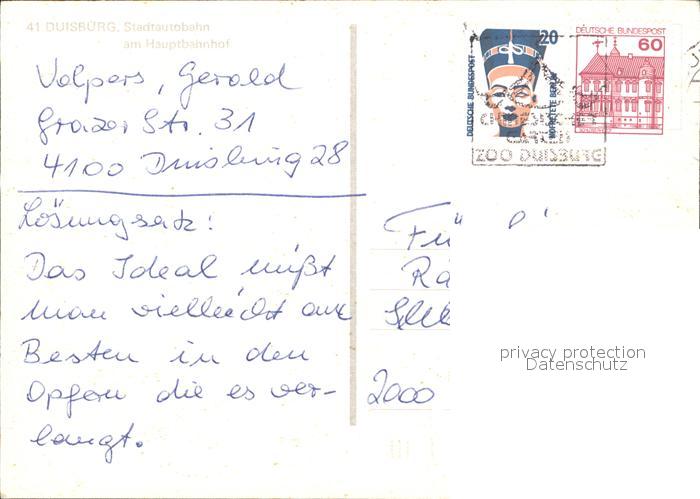 41 DUISBURG, Stadtautobahn
am Hauptbahnhof
Volpers, Gerold
Grazer Str. 31
4100 Duisburg 28
Lösungssatz:
Das Ideal mißt
man vielleicht am
Besten in den
Opfern die es ver-
langt.
DEUTSCHE BUNDESPOST
20
NOFRETETE BERLIN
DEUTSCHE BUNDESPOST
60
CHINESISCHER
GARTEN
ZOO DUISBURG
Fü
Rä
2000
privacy protection
Datenschutz